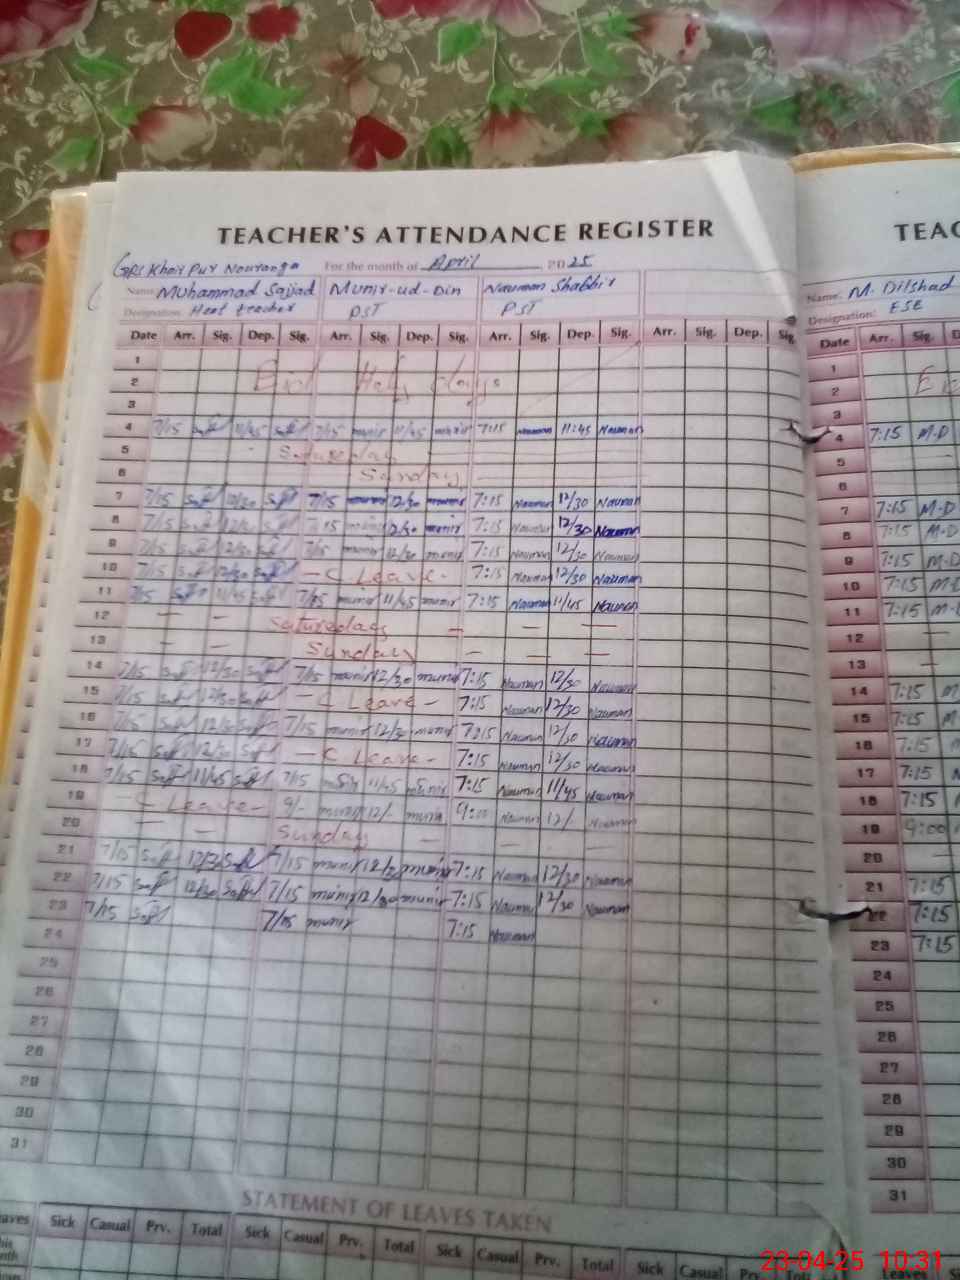 TEACHER'S ATTENDANCE REGISTER
TEAC
GPS Khair Pur Nouranga For the month of April 2025
Name: Muhammad Sajjad Munir-ud-Din Nauman Shabbir
Designation: Head teacher PST PST
Name: M. Dilshad
Designation: ESE
Date Arr. Sig. Dep. Sig. Arr. Sig. Dep. Sig. Arr. Sig. Dep. Sig. Arr. Sig. Dep. Sig.
Date Arr. Sig. D
1
2 Eid Holy days
3
4 7/15 11/45 7/15 munir 11/45 munir 7:15 Nauman 11:45 Nauman
5 Saturday
6 Sunday
7 7/15 12/30 7/15 munir 12/30 munir 7:15 Nauman 12/30 Nauman
8 7/15 12/30 7/15 munir 12/30 munir 7:15 Nauman 12/30 Nauman
9 7/15 12/30 7/15 munir 12/30 munir 7:15 Nauman 12/30 Nauman
10 7/15 12/30 - C Leave - 7:15 Nauman 12/30 Nauman
11 7/15 11/45 7/15 munir 11/45 munir 7:15 Nauman 11/45 Nauman
12 — — Saturedays — — — —
13 — — Sunday — — —
14 7/15 12/30 7/15 munir 12/30 munir 7:15 Nauman 12/30 Nauman
15 7/15 12/30 - C Leave - 7:15 Nauman 12/30 Nauman
16 7/15 12/30 7/15 munir 12/30 munir 7:15 Nauman 12/30 Nauman
17 7/15 12/30 - C Leave - 7:15 Nauman 12/30 Nauman
18 7/15 11/45 7/15 munir 11/45 munir 7:15 Nauman 11/45 Nauman
19 - C Leave - 9/- munir 12/- munir 9:00 Nauman 12/- Nauman
20 — — Sunday — — — —
21 7/15 12/30 7/15 munir 12/30 munir 7:15 Nauman 12/30 Nauman
22 7/15 12/30 7/15 munir 12/30 munir 7:15 Nauman 12/30 Nauman
23 7/15 7/15 munir 7:15 Nauman
24
25
26
27
28
29
30
31
1
2
3
4 7:15 M.D
5
6
7 7:15 M.D
8 7:15 M.D
9 7:15 M.D
10 7:15 M.D
11 7:15 M.D
12 —
13 —
14 7:15 M
15 7:15 M
16 7:15 M
17 7:15
18 7:15
19 9:00
20 —
21 7:15
22 7:15
23 7:15
24
25
26
27
28
29
30
31
STATEMENT OF LEAVES TAKEN
Sick Casual Prv. Total Sick Casual Prv. Total Sick Casual Prv. Total Sick Casual Prv.
Leaves
23-04-25 10:31